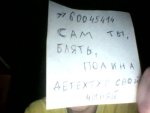 >>60045414
САМ ТЫ,
БЛЯТЬ,
ПОЛИНА
ДЕТЕКТИТ СВОЙ